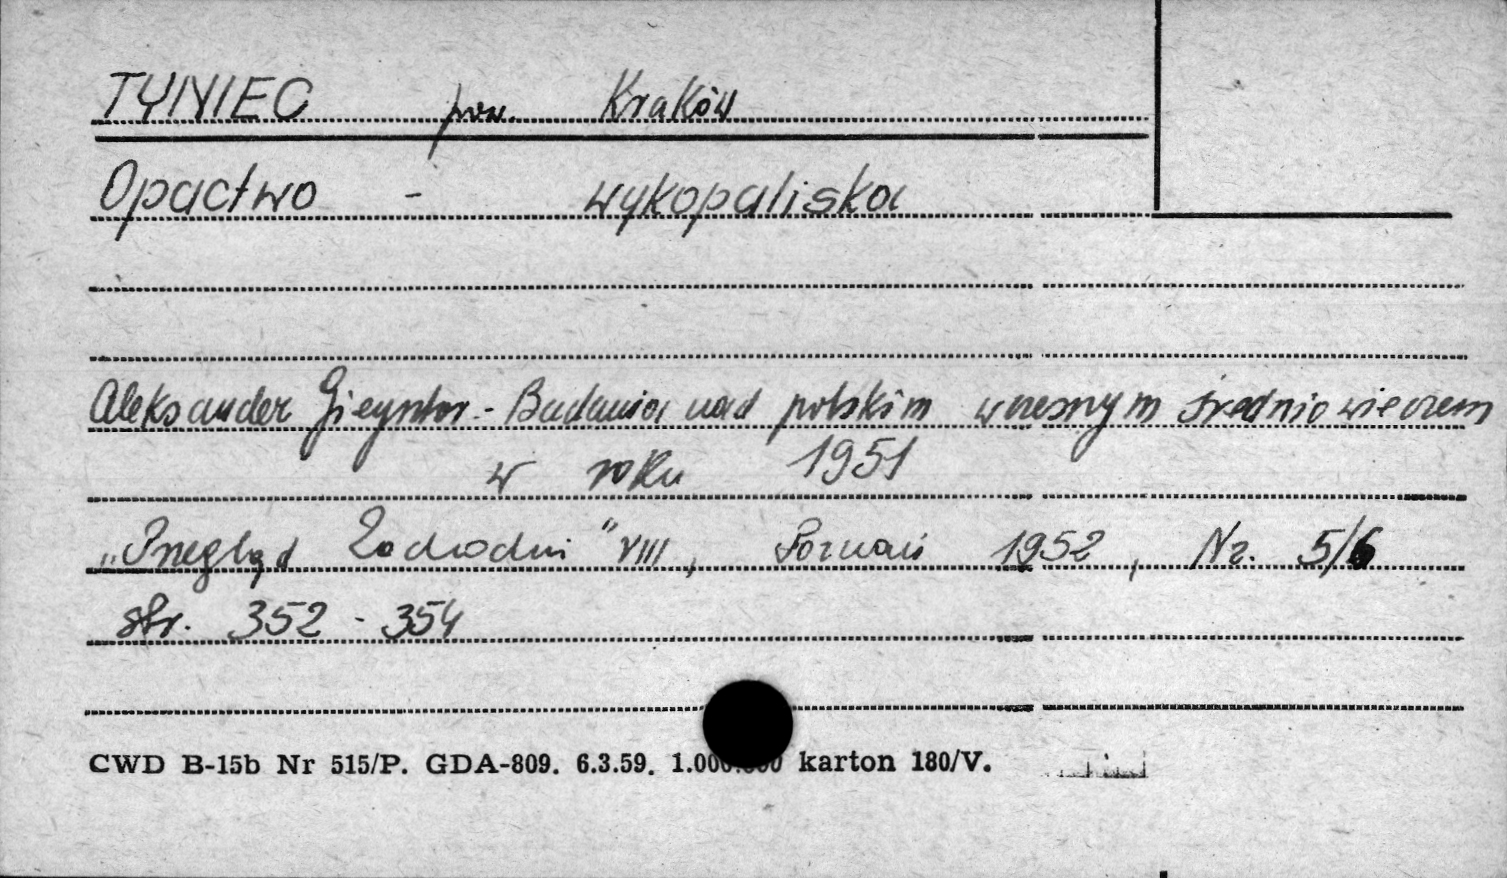 TYNIEC pow. Kraków
Opactwo - wykopaliska
Aleksander Gieysztor - Badania nad polskim wczesnym średniowieczem
w roku 1951
„Przegląd Zachodni" VIII, Poznań 1952, Nr. 5/6
str. 352 - 354
CWD B-15b Nr 515/P. GDA-809. 6.3.59. 1.000.000 karton 180/V.